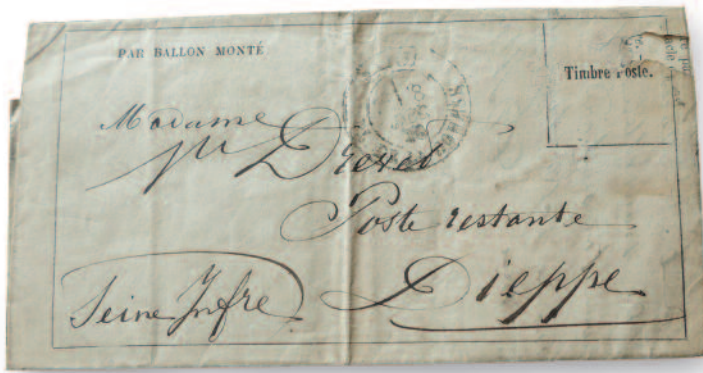 PAR BALLON MONTÉ
Timbre Poste.
Madame
Drevet
Poste restante
Dieppe
Seine Infre